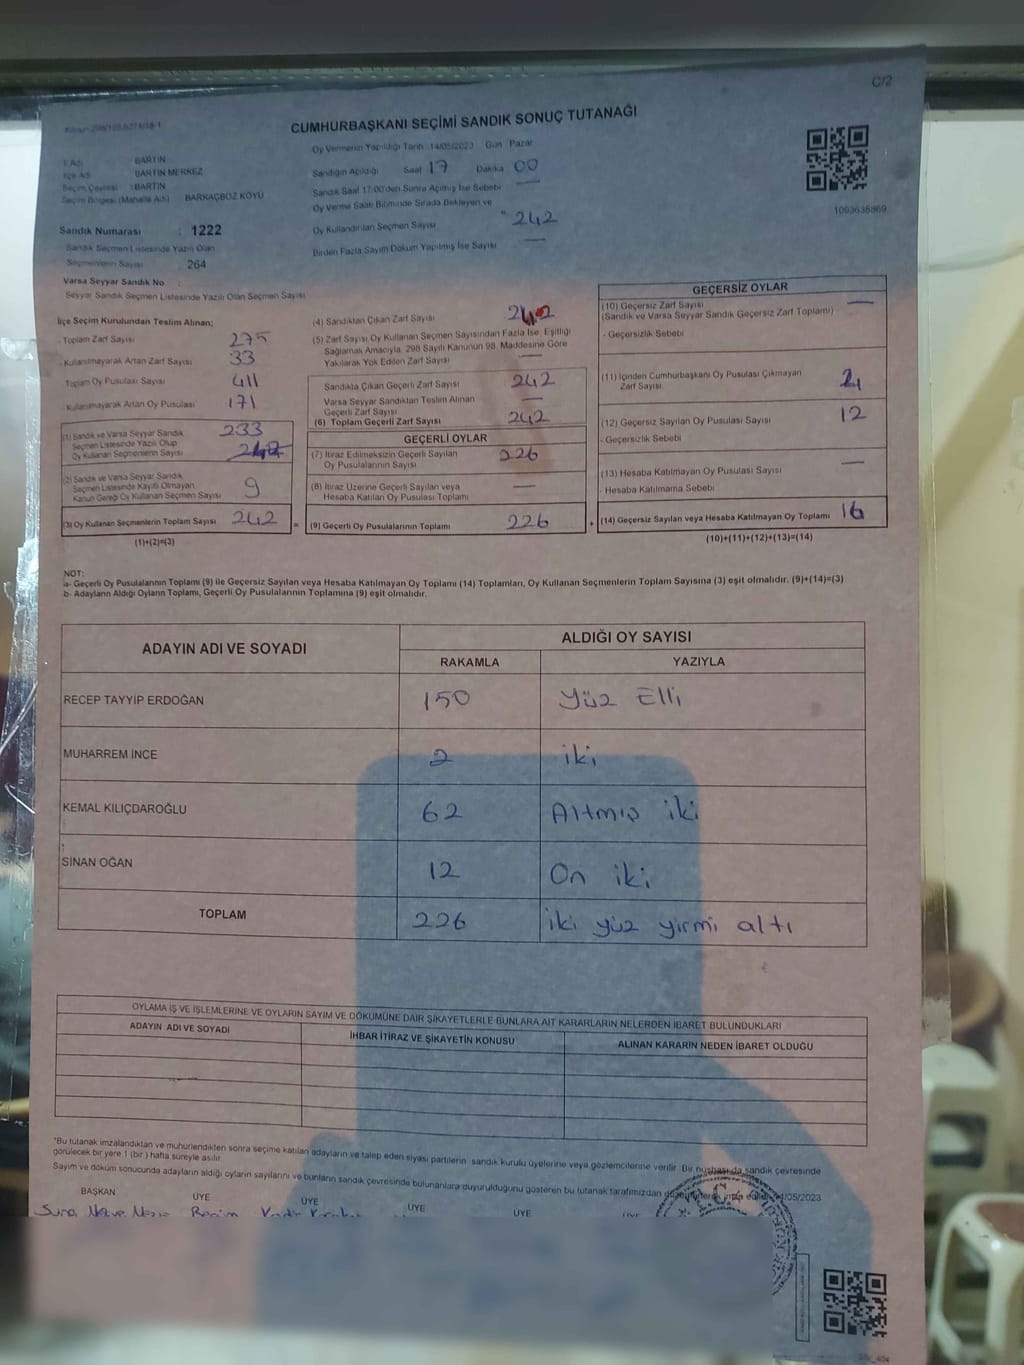 C/2
CUMHURBAŞKANI SEÇİMİ SANDIK SONUÇ TUTANAĞI
İl Adı : BARTIN
İlçe Adı : BARTIN MERKEZ
Seçim Çevresi : BARTIN
Seçim Bölgesi (Mahalle Adı) BARKAÇBOZ KÖYÜ
Sandık Numarası : 1222
Sandık Seçmen Listesinde Yazılı Olan
Seçmenlerin Sayısı : 264
Varsa Seyyar Sandık No :
Seyyar Sandık Seçmen Listesinde Yazılı Olan Seçmen Sayısı
Oy Vermenin Yapıldığı Tarih :14/05/2023 Gün Pazar
Sandığın Açıldığı Saat 17 Dakika 00
Sandık Saat 17:00'den Sonra Açılmış İse Sebebi —
Oy Verme Saati Bitiminde Sırada Bekleyen ve
Oy Kullandırılan Seçmen Sayısı 242
Birden Fazla Sayım Döküm Yapılmış İse Sayısı —
1093636869
İlçe Seçim Kurulundan Teslim Alınan;
- Toplam Zarf Sayısı 275
- Kullanılmayarak Artan Zarf Sayısı 33
Toplam Oy Pusulası Sayısı 411
- Kullanılmayarak Artan Oy Pusulası 171
(1) Sandık ve Varsa Seyyar Sandık 233
Seçmen Listesinde Yazılı Olup
Oy Kullanan Seçmenlerin Sayısı
(2) Sandık ve Varsa Seyyar Sandık
Seçmen Listesinde Kayıtlı Olmayan
Kanun Gereği Oy Kullanan Seçmen Sayısı 9
(3) Oy Kullanan Seçmenlerin Toplam Sayısı 242 =
(1)+(2)=(3)
(4) Sandıktan Çıkan Zarf Sayısı 242
(5) Zarf Sayısı Oy Kullanan Seçmen Sayısından Fazla İse, Eşitliği
Sağlamak Amacıyla, 298 Sayılı Kanunun 98. Maddesine Göre
Yakılarak Yok Edilen Zarf Sayısı —
Sandıkta Çıkan Geçerli Zarf Sayısı 242
Varsa Seyyar Sandıktan Teslim Alınan
Geçerli Zarf Sayısı —
(6) Toplam Geçerli Zarf Sayısı 242
GEÇERLİ OYLAR
(7) İtiraz Edilmeksizin Geçerli Sayılan
Oy Pusulalarının Sayısı 226
(8) İtiraz Üzerine Geçerli Sayılan veya
Hesaba Katılan Oy Pusulası Toplamı —
(9) Geçerli Oy Pusulalarının Toplamı 226 +
GEÇERSİZ OYLAR
(10) Geçersiz Zarf Sayısı —
(Sandık ve Varsa Seyyar Sandık Geçersiz Zarf Toplamı)
- Geçersizlik Sebebi
(11) İçinden Cumhurbaşkanı Oy Pusulası Çıkmayan
Zarf Sayısı
(12) Geçersiz Sayılan Oy Pusulası Sayısı 12
- Geçersizlik Sebebi
(13) Hesaba Katılmayan Oy Pusulası Sayısı —
- Hesaba Katılmama Sebebi
(14) Geçersiz Sayılan veya Hesaba Katılmayan Oy Toplamı 16
(10)+(11)+(12)+(13)=(14)
NOT:
a- Geçerli Oy Pusulalarının Toplamı (9) ile Geçersiz Sayılan veya Hesaba Katılmayan Oy Toplamı (14) Toplamları, Oy Kullanan Seçmenlerin Toplam Sayısına (3) eşit olmalıdır. (9)+(14)=(3)
b- Adayların Aldığı Oyların Toplamı, Geçerli Oy Pusulalarının Toplamına (9) eşit olmalıdır.
ADAYIN ADI VE SOYADI ALDIĞI OY SAYISI
RAKAMLA YAZIYLA
RECEP TAYYİP ERDOĞAN 150 Yüz Elli
MUHARREM İNCE 2 iki
KEMAL KILIÇDAROĞLU 62 Altmış iki
SİNAN OĞAN 12 On iki
TOPLAM 226 iki yüz yirmi altı
OYLAMA İŞ VE İŞLEMLERİNE VE OYLARIN SAYIM VE DÖKÜMÜNE DAİR ŞİKAYETLERLE BUNLARA AİT KARARLARIN NELERDEN İBARET BULUNDUKLARI
ADAYIN ADI VE SOYADI İHBAR İTİRAZ VE ŞİKAYETİN KONUSU ALINAN KARARIN NEDEN İBARET OLDUĞU
"Bu tutanak imzalandıktan ve mühürlendikten sonra seçime katılan adayların ve talep eden siyasi partilerin sandık kurulu üyelerine veya gözlemcilerine verilir. Bir nüshası da sandık çevresinde
görülecek bir yere 1 (bir) hafta süreyle asılır.
Sayım ve döküm sonucunda adayların aldığı oyların sayılarını ve bunların sandık çevresinde bulunanlara duyurulduğunu gösteren bu tutanak tarafımızdan /05/2023
BAŞKAN ÜYE ÜYE ÜYE ÜYE
T.C.